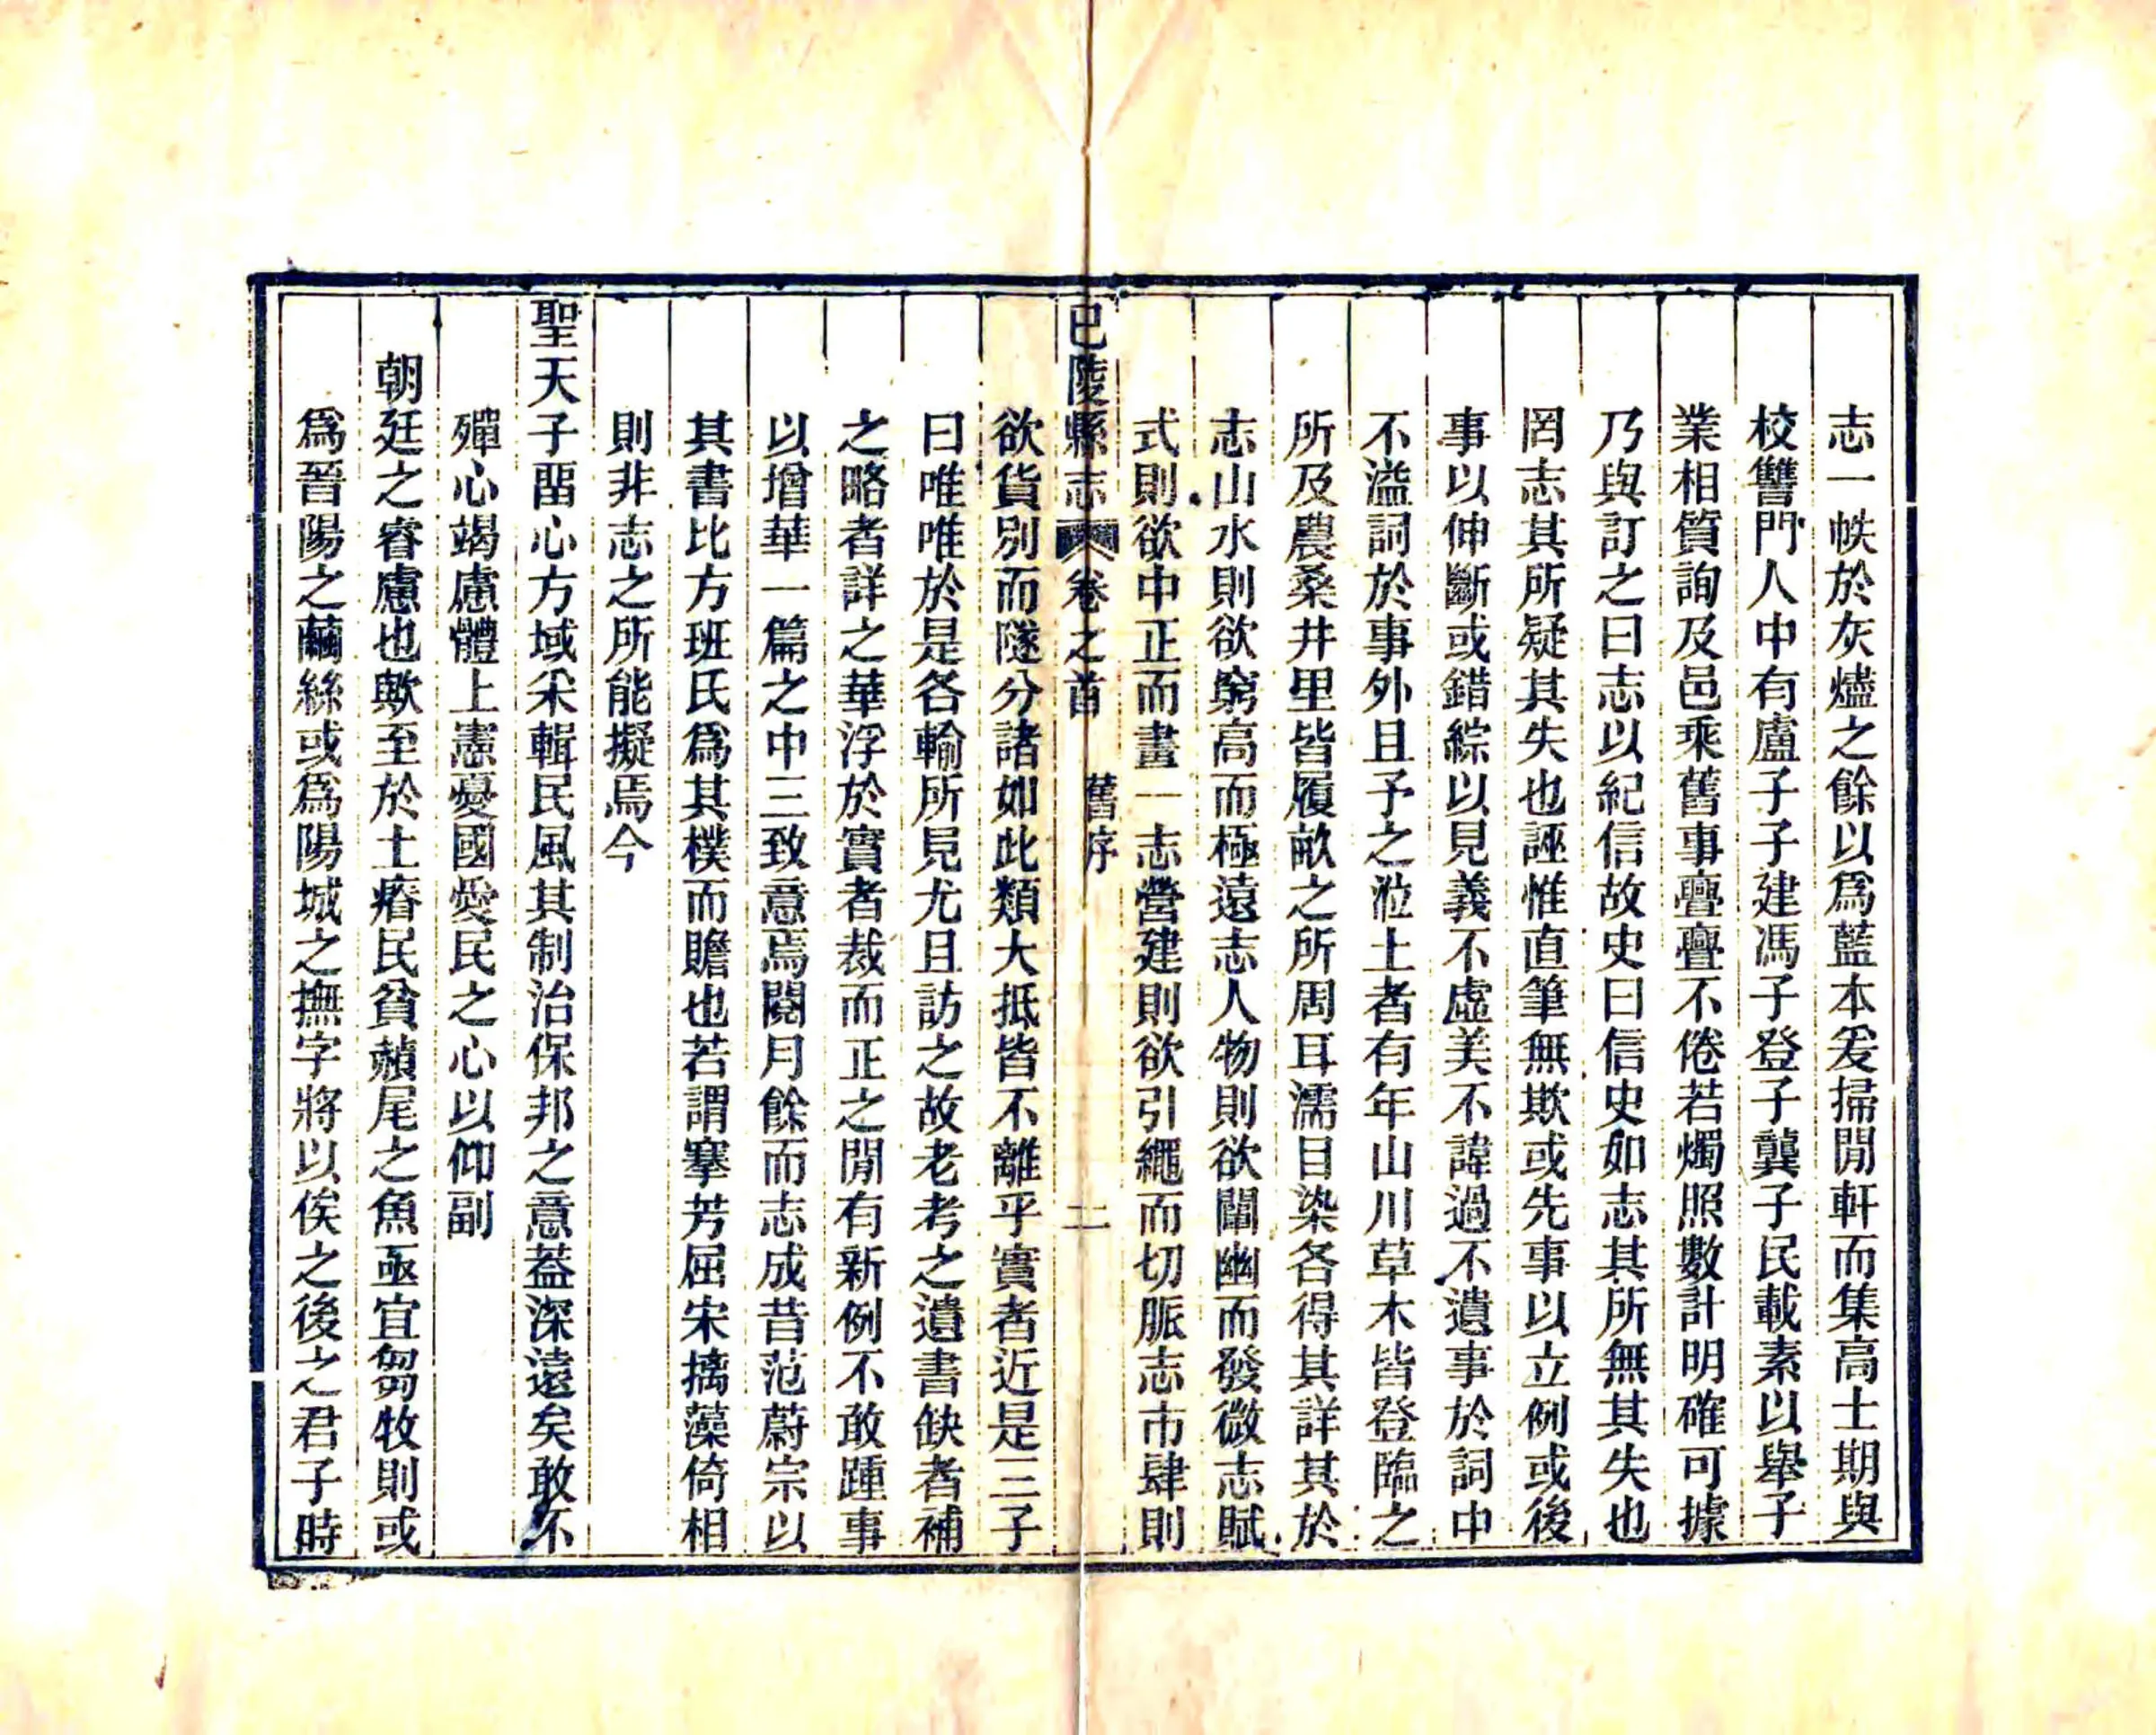 志一帙於灰燼之餘以爲藍本爰掃閒軒而集高士期與
校讐門人中有盧子子建馮子登子龔子民載素以舉子
業相質詢及邑乘舊事亹亹不倦若燭照數計明確可據
乃與訂之曰志以紀信故史曰信史如志其所無其失也
罔志其所疑其失也誣惟直筆無欺或先事以立例或後
事以伸斷或錯綜以見義不虛美不諱過不遺事於詞中
不溢詞於事外且予之涖土者有年山川草木皆登臨之
所及農桑井里皆履畝之所周耳濡目染各得其詳其於
志山水則欲窮高而極遠志人物則欲闡幽而發微志賦
式則欲中正而畫一志營建則欲引繩而切脈志市肆則
巴陵縣志 卷之首 舊序 二
欲貨別而隧分諸如此類大抵皆不離乎實者近是三子
曰唯唯於是各輸所見尤且訪之故老考之遺書缺者補
之略者詳之華浮於實者裁而正之閒有新例不敢踵事
以增華一篇之中三致意焉閱月餘而志成昔范蔚宗以
其書比方班氏爲其樸而贍也若謂搴芳屈宋摛藻倚相
則非志之所能擬焉今
聖天子畱心方域采輯民風其制治保邦之意葢深遠矣敢不
殫心竭慮體上憲憂國愛民之心以仰副
朝廷之睿慮也歟至於土瘠民貧蘋尾之魚亟宜芻牧則或
爲晉陽之繭絲或爲陽城之撫字將以俟之後之君子時